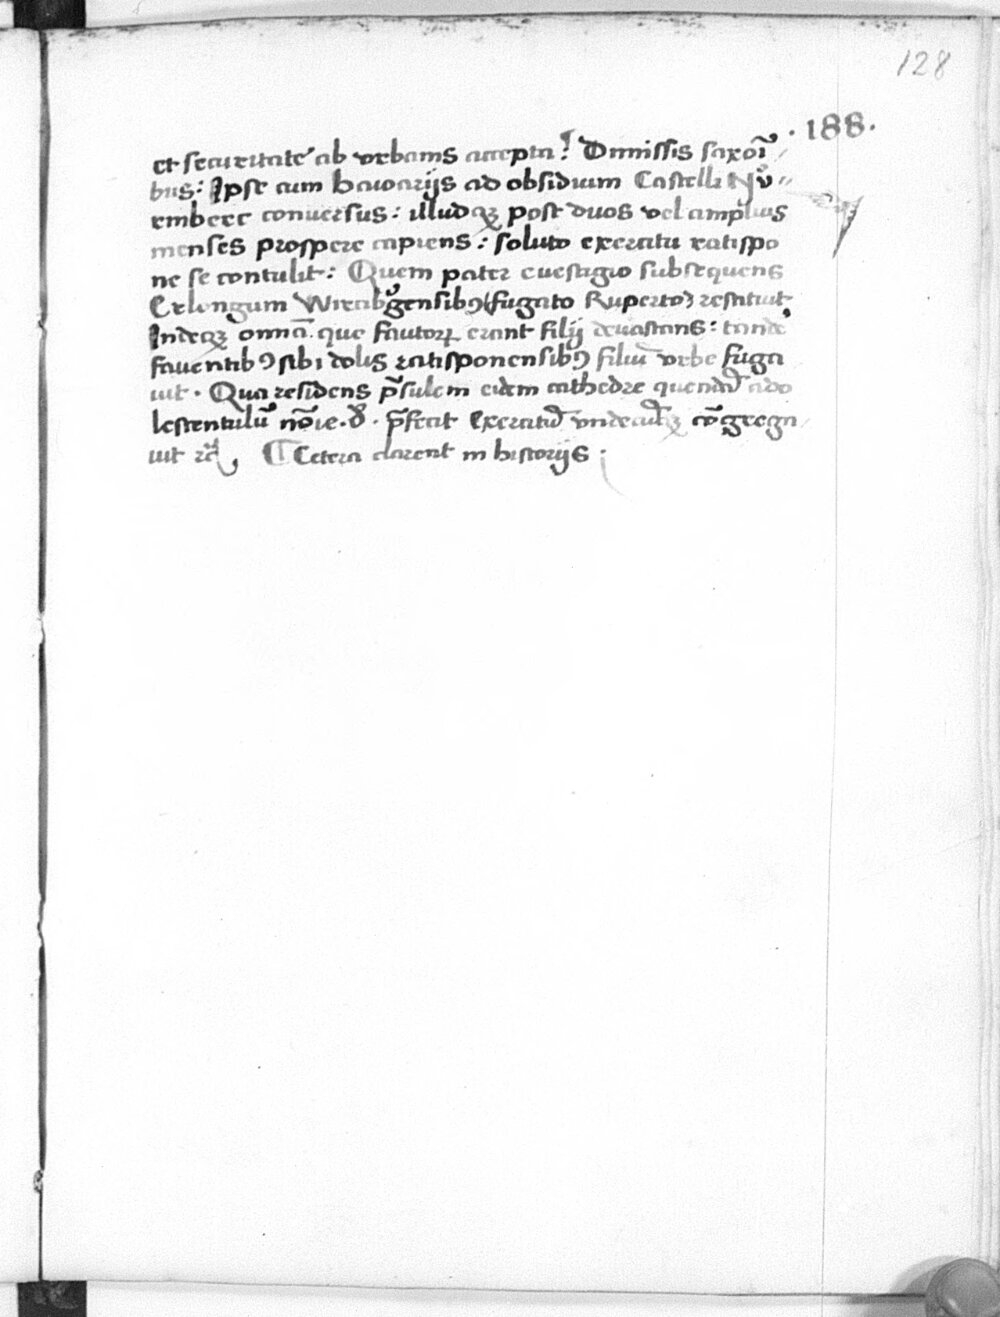 128
· 188 ·
et securitate ab vrbanis accepta: Dimissis saxoı̄
bus: Ipse cum bawarijs ad obsidium Castelli Nv̊
emberc conuersus: illudqꝫ post duos vel amplius
menses prospere capiens: soluto exercitu ratispo
ne se contulit: Quem pater euestagio subsequens
Erlongum Wirtzb᷑gensibꝰ (fugato Ruperto) restituit
Indeqꝫ omnā que fautorꝝ erant filij deuastans: tandē
fauentibꝰ sibi dolis ratisponensibꝰ filiū vrbe fuga
uit · Qua residens p̄sulem eidem cathedre quendā ado
lescentulū nōı̄e · v̊ · p̄fecit Exercitū vndecūqꝫ cōgrega
uit ⁊cͣ, ¶ Cetera clarent in historijs ·